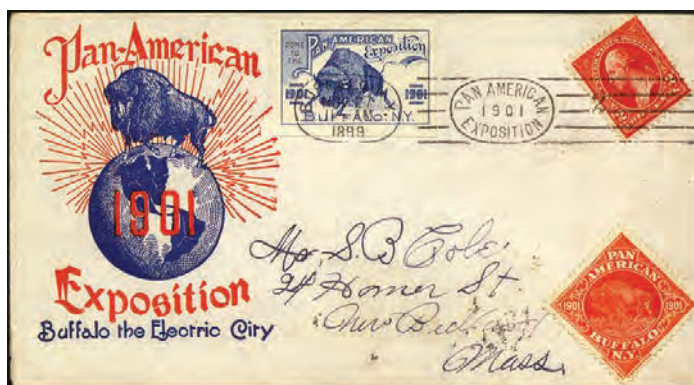 Pan-American
1901
Exposition
Buffalo the Electric City
COME TO THE
PAN-AMERICAN
Exposition
1901 1901
BUFFALO N.Y.
1899
PAN AMERICAN
1901
EXPOSITION
Mr. S. B. Cole.
24 Homer St.
New
Mass.
PAN
AMERICAN
1901 1901
BUFFALO
N.Y.